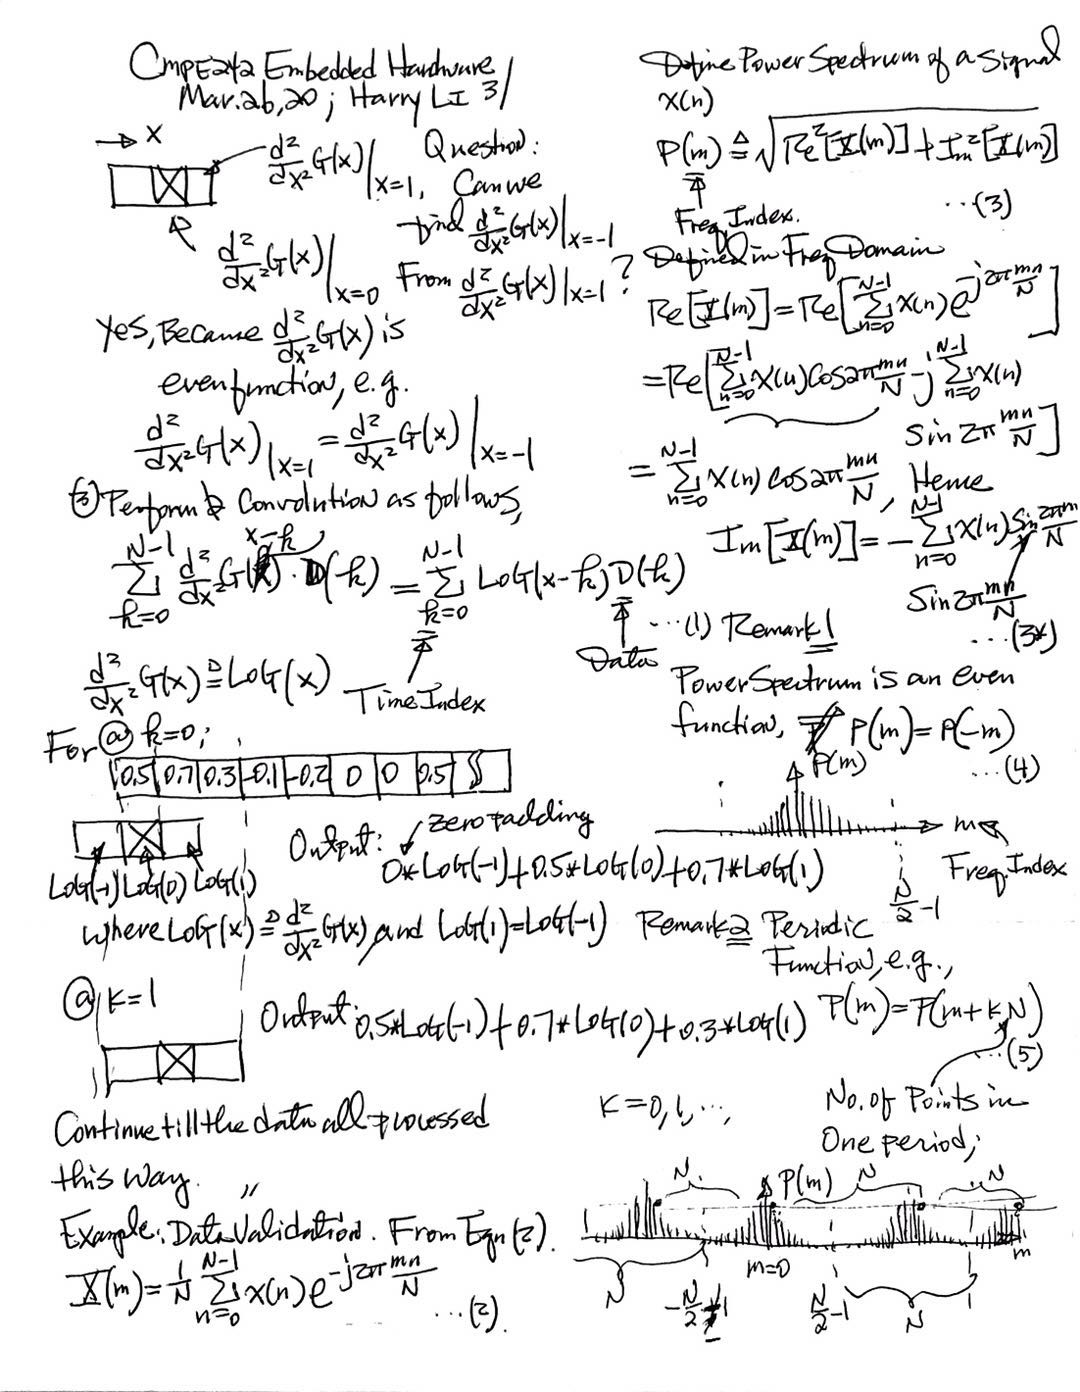 CMPE242 Embedded Hardware
Mar.26,20; Harry LI 3/
→ X
d²/dx² G(x)|x=1,
d²/dx² G(x)|x=0
Question:
Can we
find d²/dx² G(x)|x=-1
From d²/dx² G(x)|x=1?
Yes, Because d²/dx² G(x) is
even function, e.g.
d²/dx² G(x)|x=1 = d²/dx² G(x)|x=-1
③ Perform Convolution as follows,
x-k
N-1 Σ k=0 d²/dx² G( ) · D(k) = N-1 Σ k=0 LoG(x-k) D(k)
...(1)
Data
d²/dx² G(x) ≜ LoG(x)
Time Index
For @ k=0;
0.5 0.7 0.3 -0.1 -0.2 0 0 0.5
LoG(-1) LoG(0) LoG(1)
Output:
zero padding
0*LoG(-1)+0.5*LoG(0)+0.7*LoG(1)
where LoG(x) ≜ d²/dx² G(x) and LoG(1)=LoG(-1)
@ K=1
Output: 0.5*LoG(-1)+0.7*LoG(0)+0.3*LoG(1)
Continue till the data all processed
this way.
Example: Data Validation. From Eqn (2).
X(m) = 1/N N-1 Σ n=0 x(n) e^-j2π mn/N
...(2).
Define Power Spectrum of a Signal
X(n)
P(m) ≜ √(Re²[X(m)] + Im²[X(m)])
...(3)
Freq. Index.
Defined in Freq Domain
Re[X(m)] = Re[N-1 Σ n=0 X(n) e^-j2π mn/N]
= Re[N-1 Σ n=0 X(n) Cos2π mn/N - j N-1 Σ n=0 X(n)
Sin 2π mn/N]
= N-1 Σ n=0 X(n) Cos2π mn/N, Hence
Im[X(m)] = - N-1 Σ n=0 X(n) Sin 2πm/N
Sin 2π mn/N
...(3*)
Remark 1
Power Spectrum is an even
function, P(m) = P(-m)
...(4)
P(m)
m
Freq. Index
N/2 -1
Remark 2 Periodic
Function, e.g.,
P(m) = P(m+kN)
...(5)
K=0,1,...,
No. of Points in
One period;
N P(m) N N
m=0 m
N -N/2 +1 N/2 -1 N